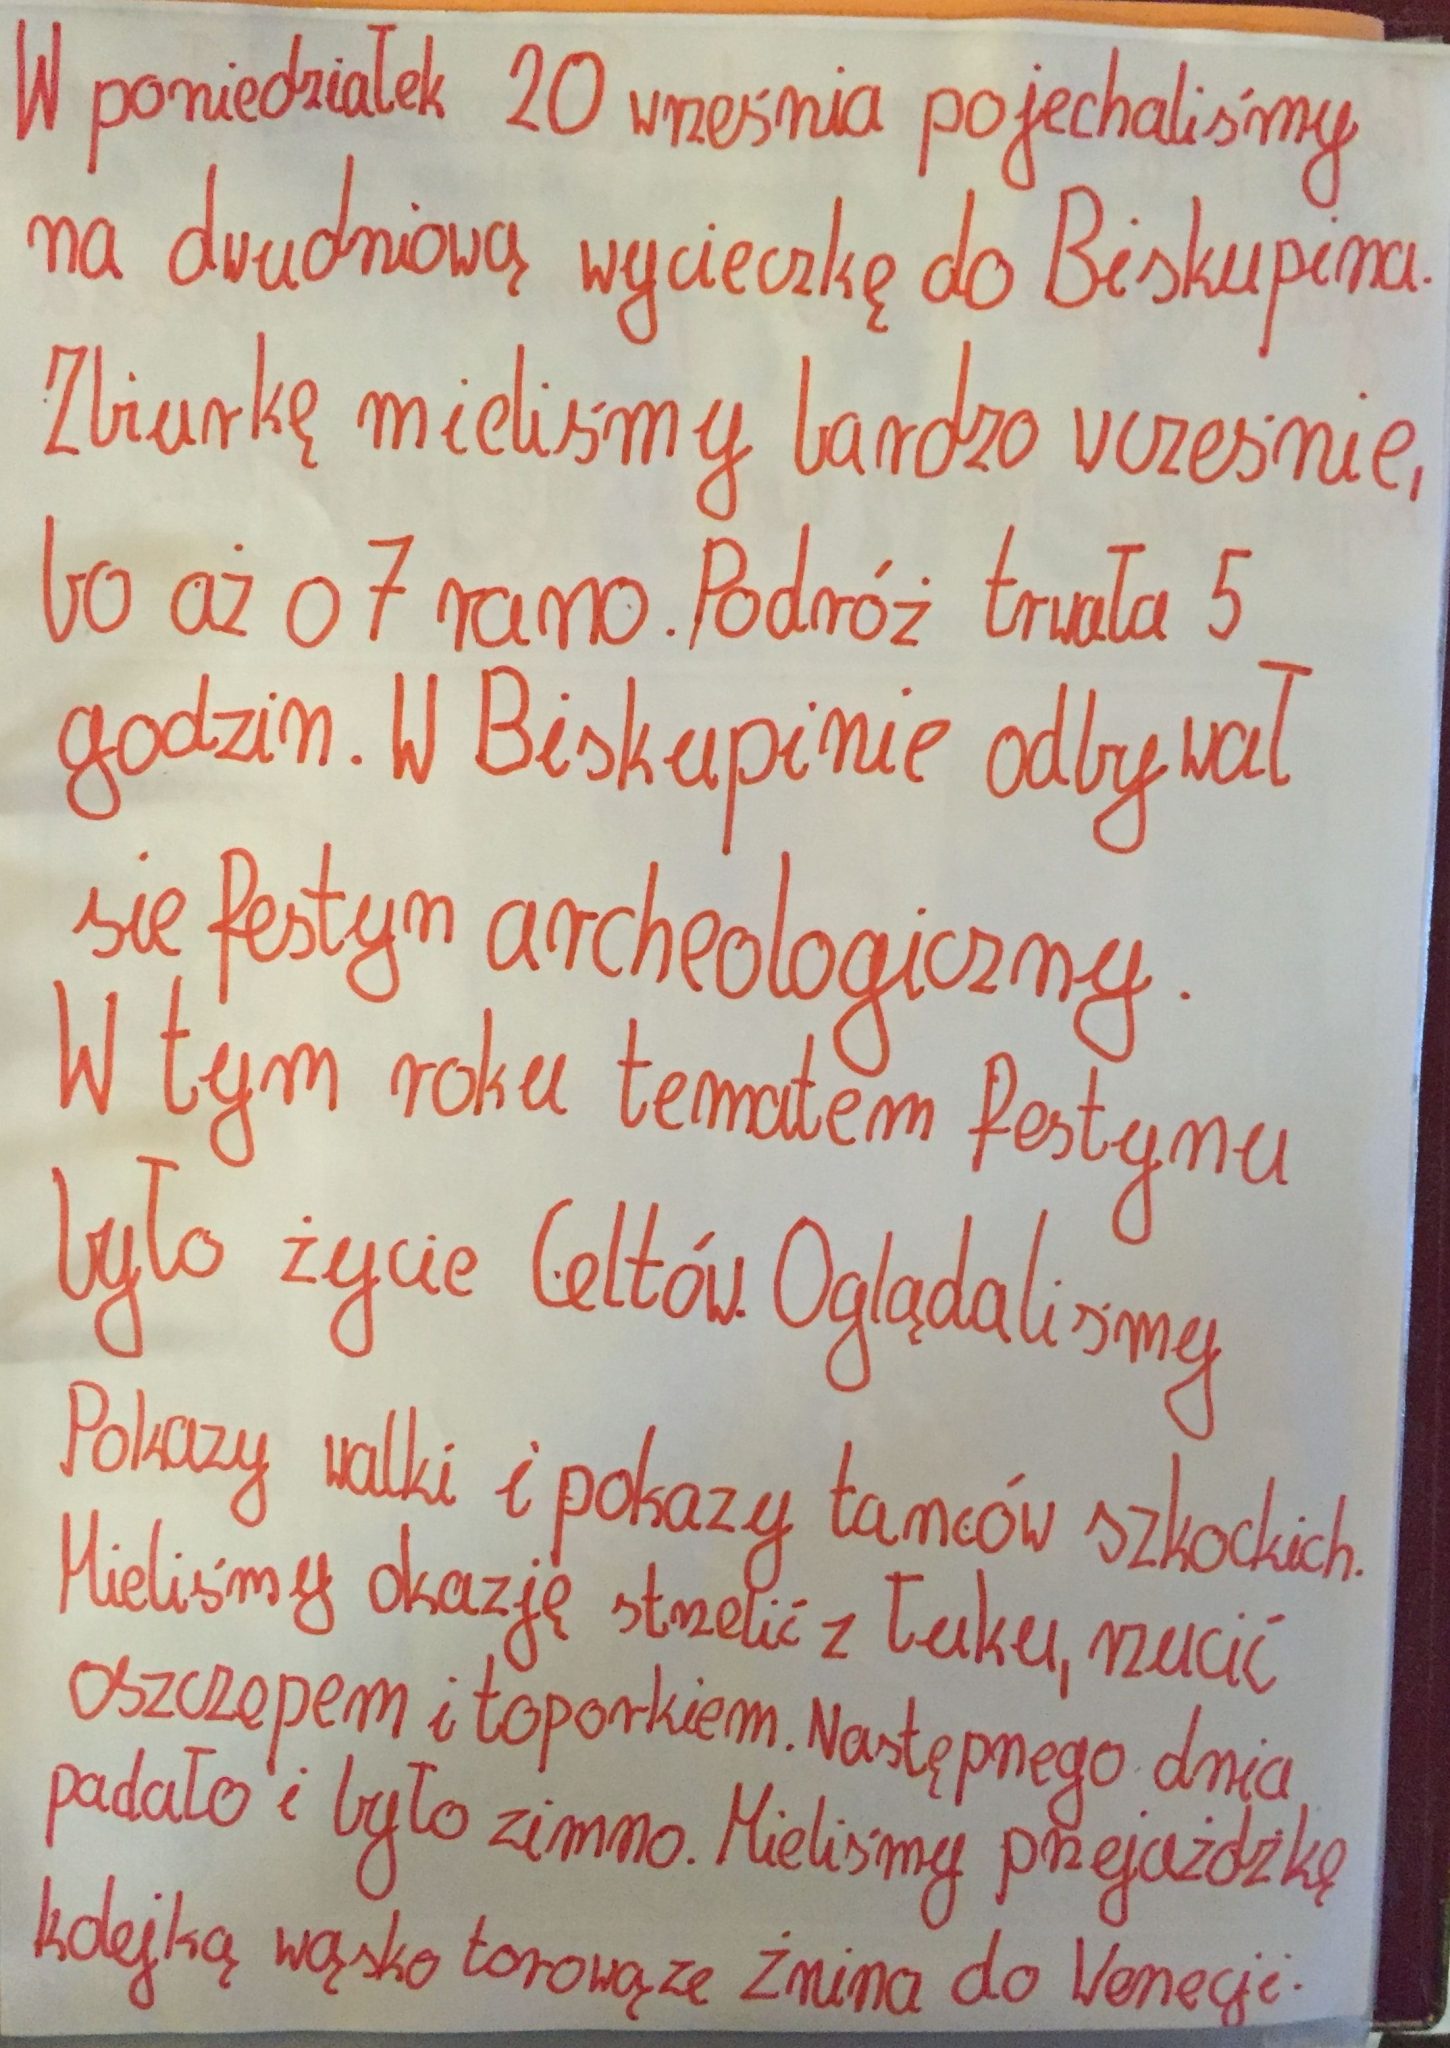 W poniedziałek 20 września pojechaliśmy
na dwudniową wycieczkę do Biskupina.
Zbiurkę mieliśmy bardzo wcześnie,
bo aż o 7 rano. Podróż trwała 5
godzin. W Biskupinie odbywał
sie festyn archeologiczny.
W tym roku tematem festynu
było życie Celtów. Oglądaliśmy
Pokazy walki i pokazy tańców szkockich.
Mieliśmy okazję strzelić z łuku, rzucić
oszczepem i toporkiem. Następnego dnia
padało i było zimno. Mieliśmy przejażdżkę
kolejką wąsko torową ze Żnina do Wenecji.